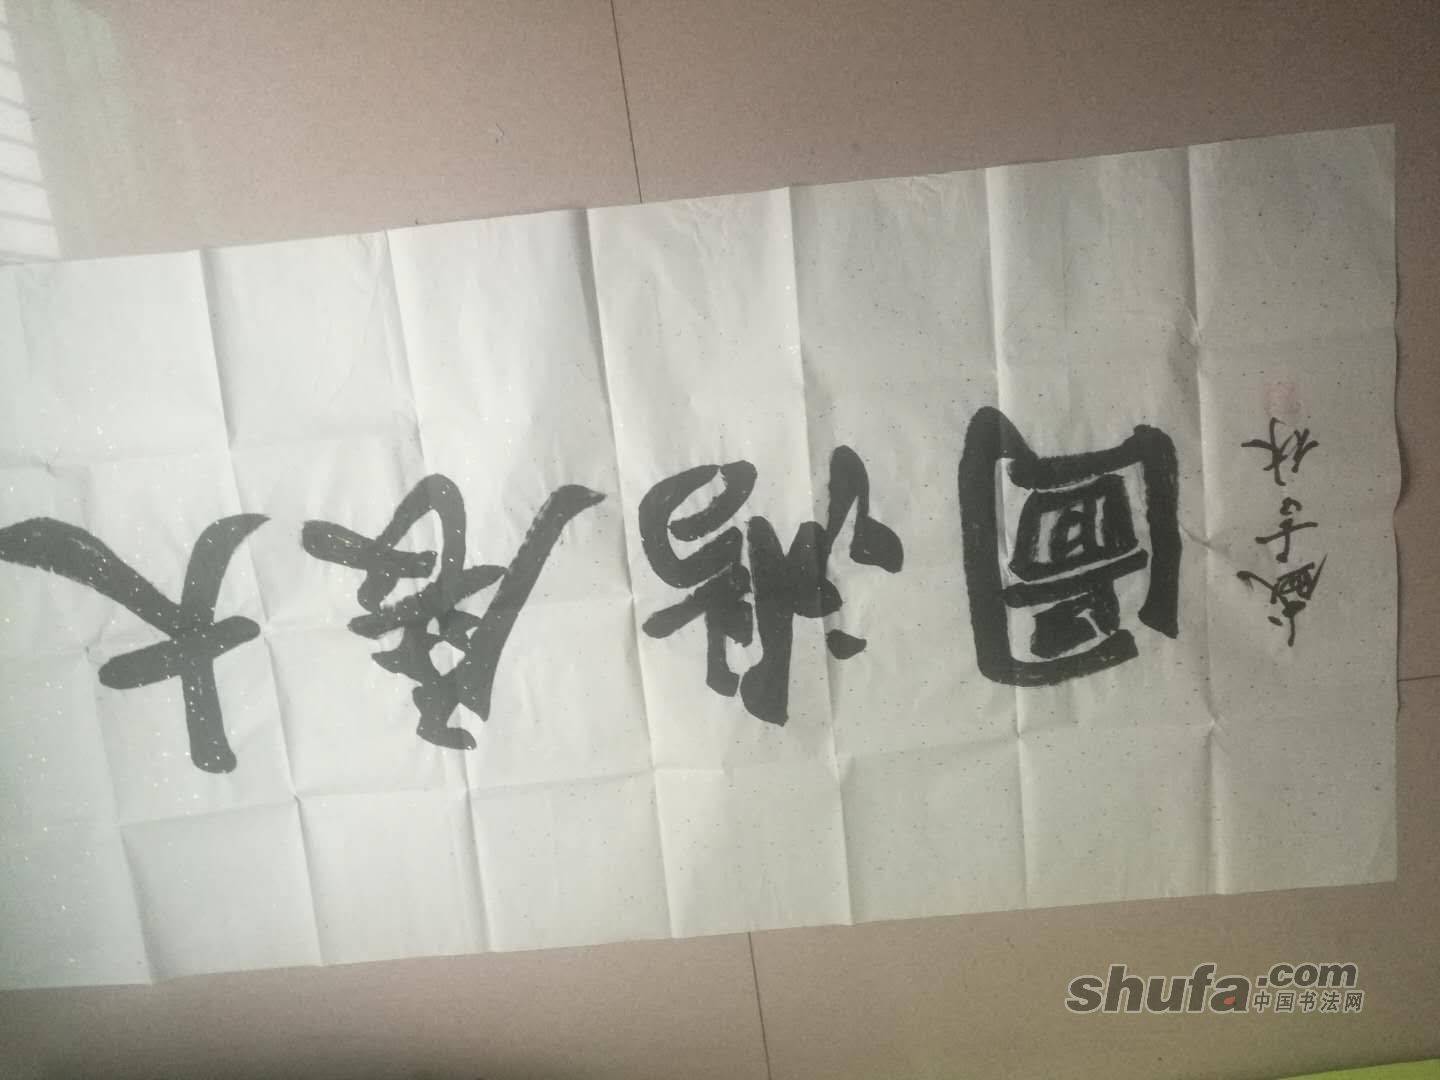 大展鸿圖
shufa.com
中国书法网